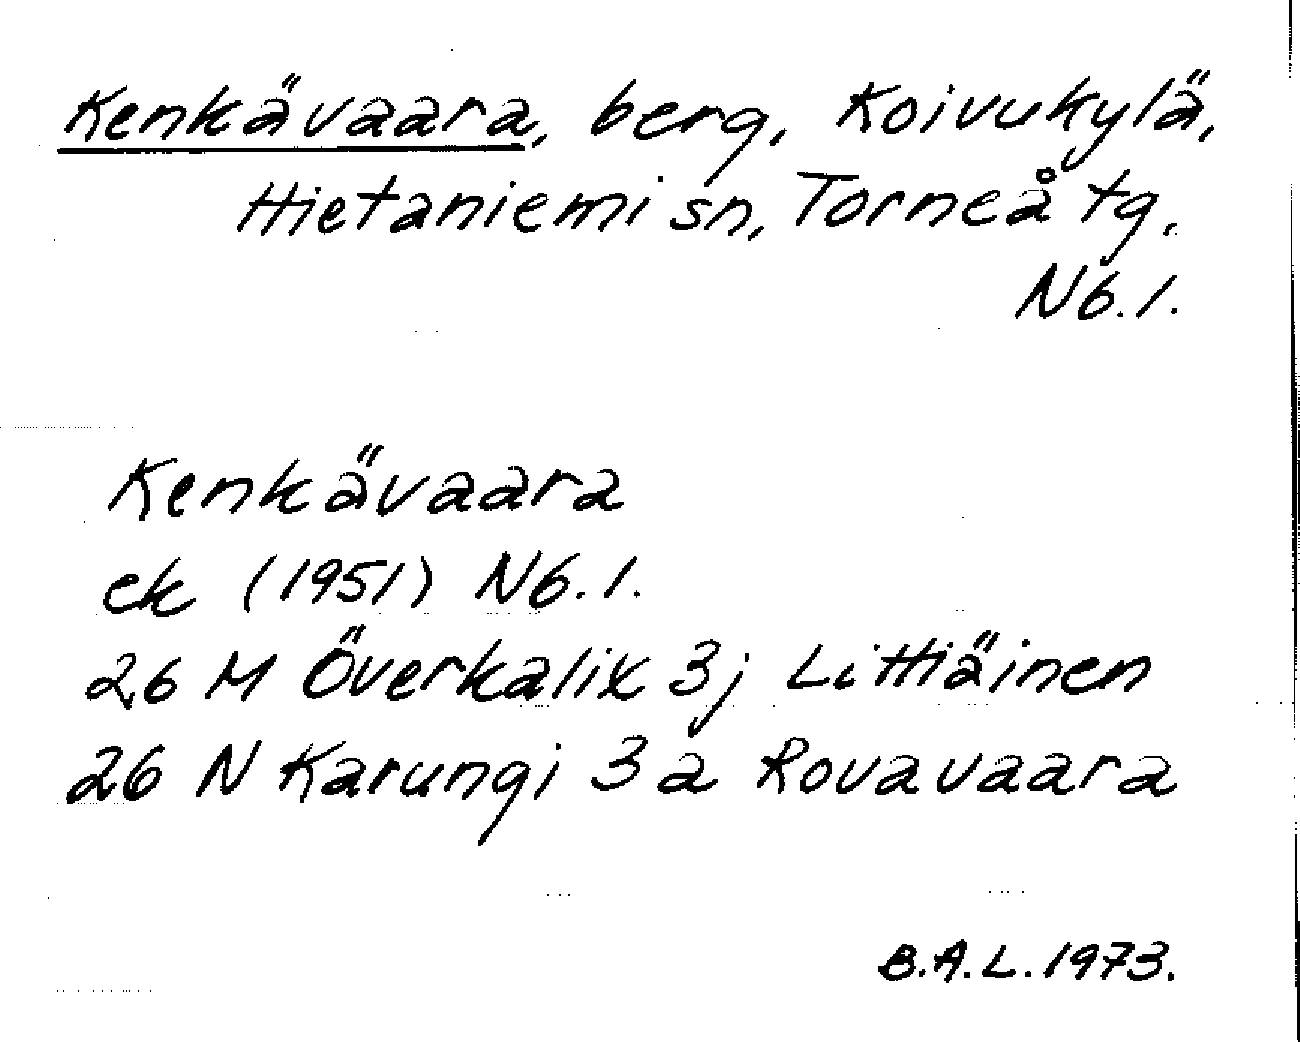 Kenkävaara, berg, Koivukylä,
Hietaniemi sn, Torneå tg.
Nb. l.
Kenkävaara
ek (1951) Nb. l.
26 M Överkalix 3j Littiäinen
26 N Karungi 3a Rovavaara
B.A.L. 1973.